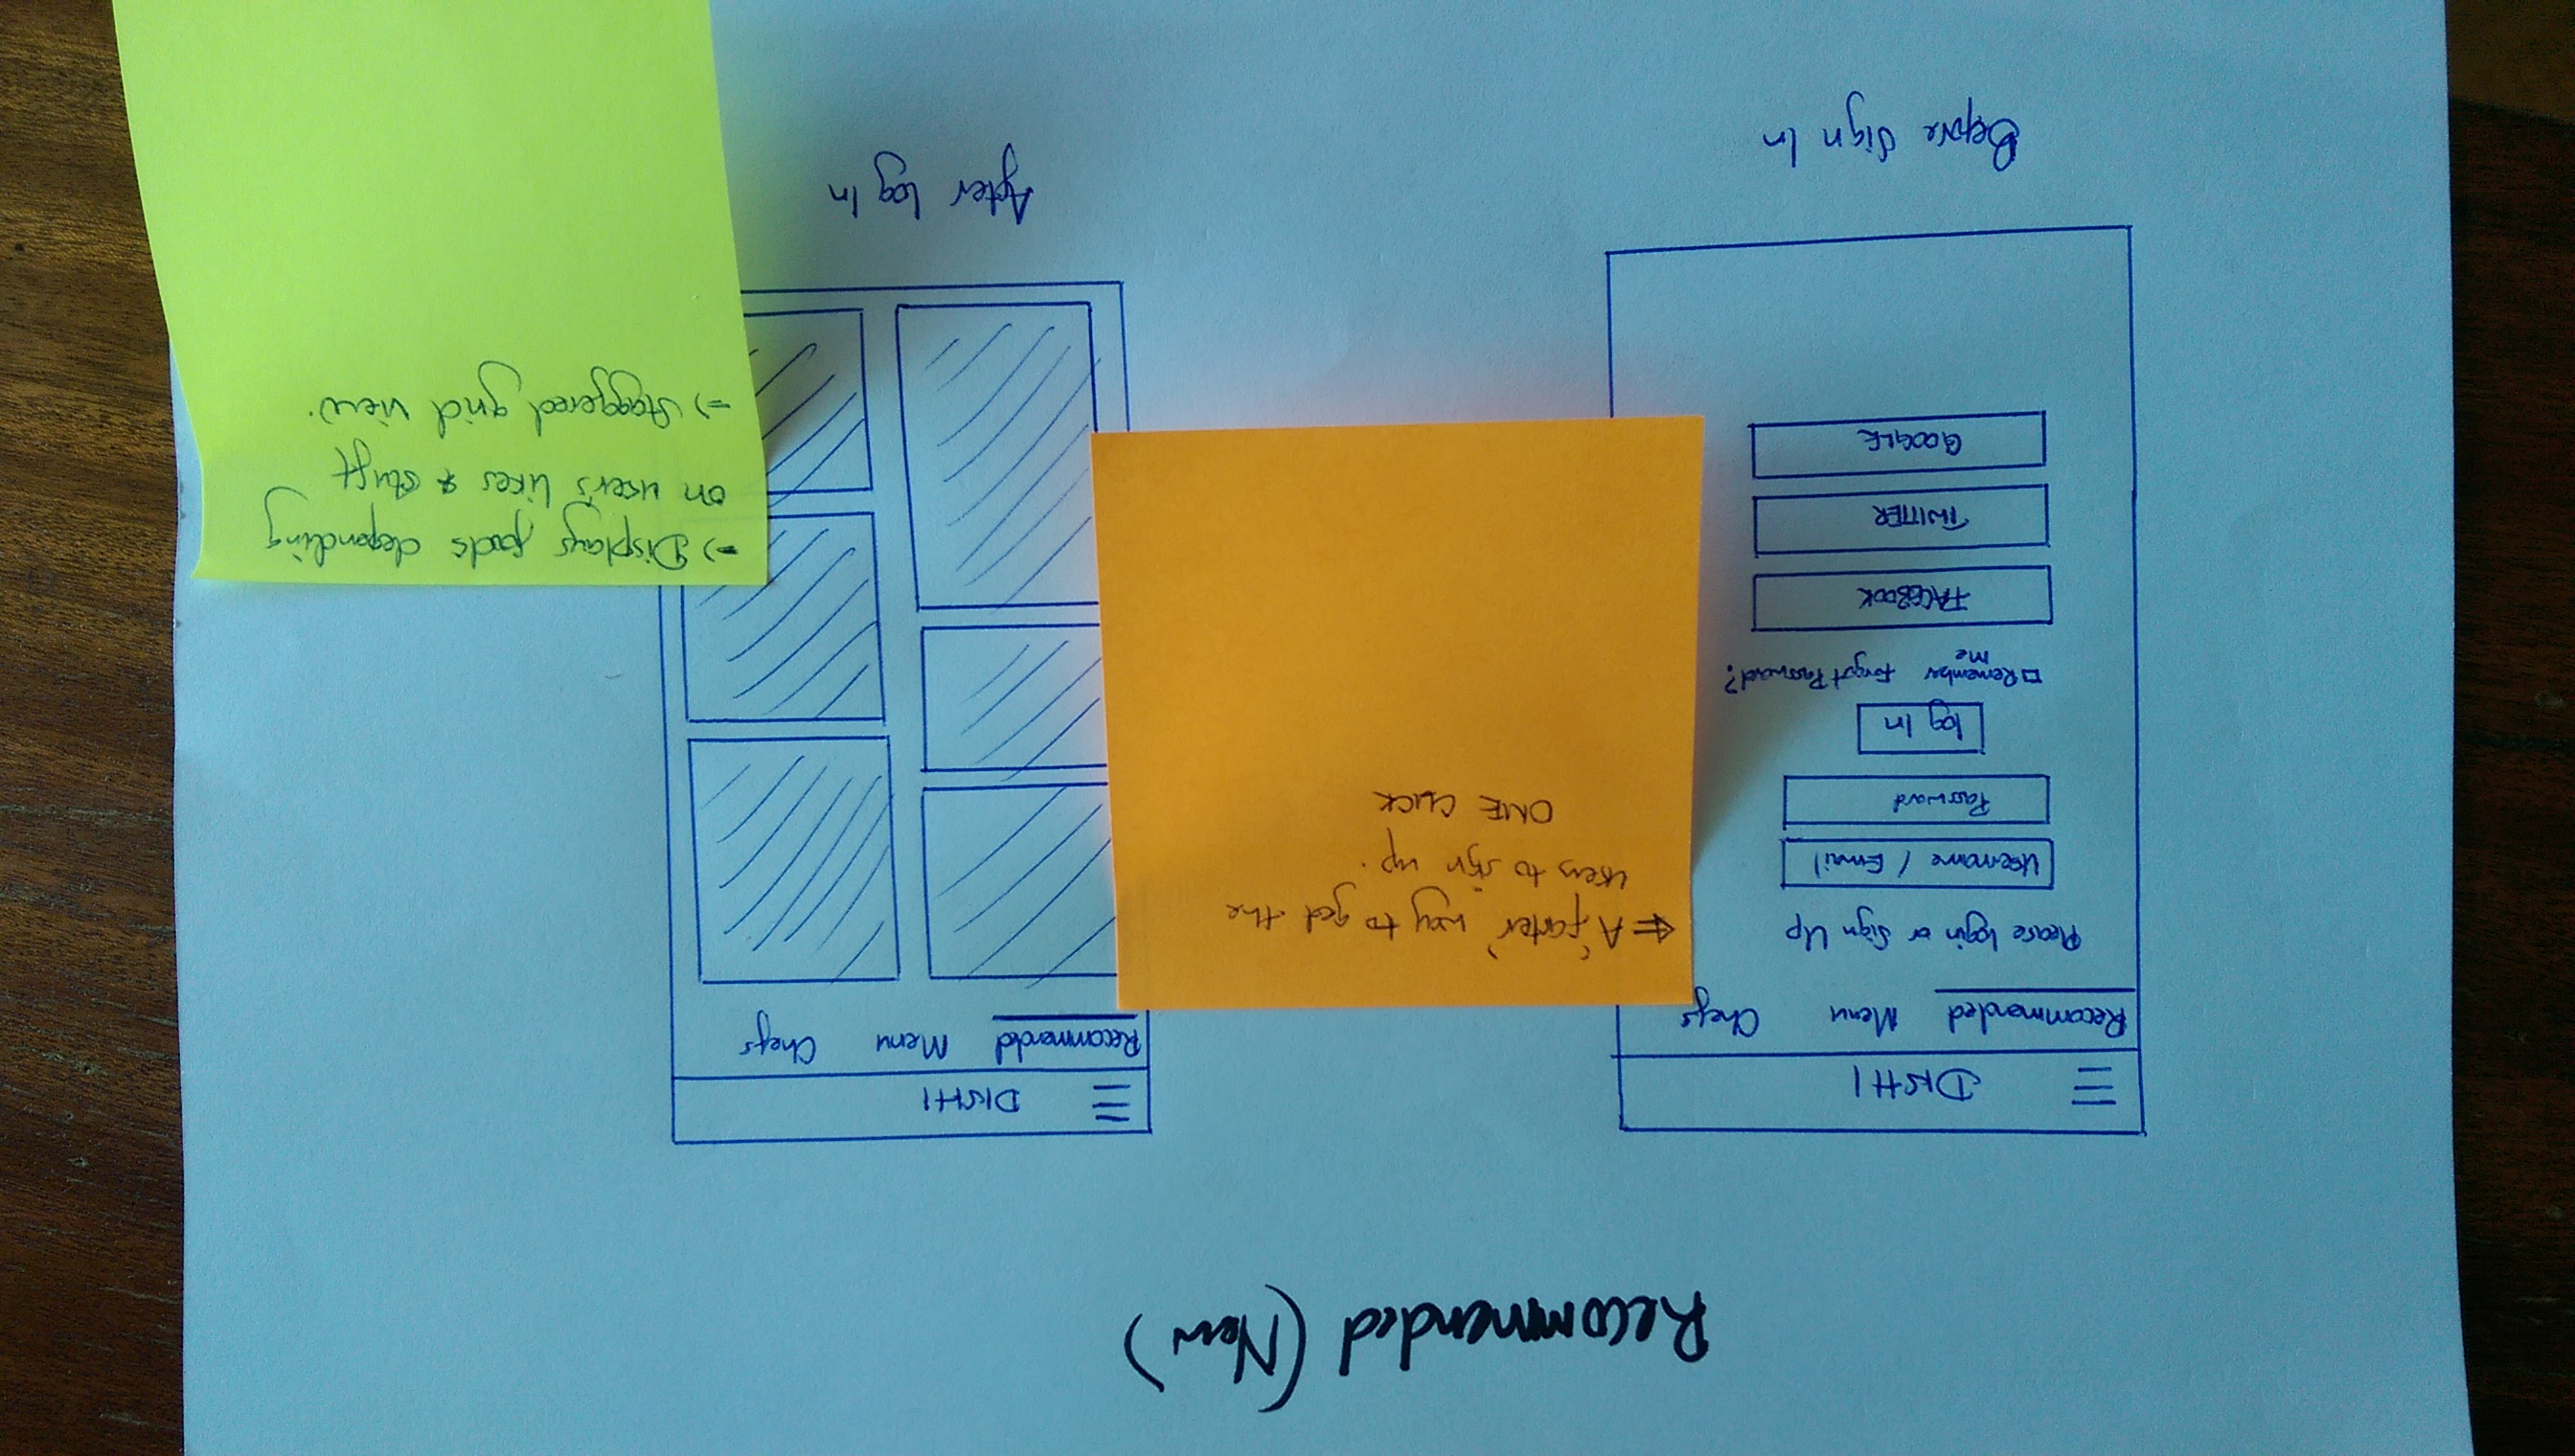 Recommended (New)
DISHI
Recommended Menu Chefs
Please login or Sign Up
Username / Email
Password
log In
Remember Me
Forgot Password?
FACEBOOK
TWITTER
GOOGLE
Before Sign In
⇐ A 'faster' way to get the
users to sign up.
ONE CLICK
DISHI
Recommended Menu Chefs
After log In
=> Displays foods depending
on user's likes & stuff
=> Staggered grid view.